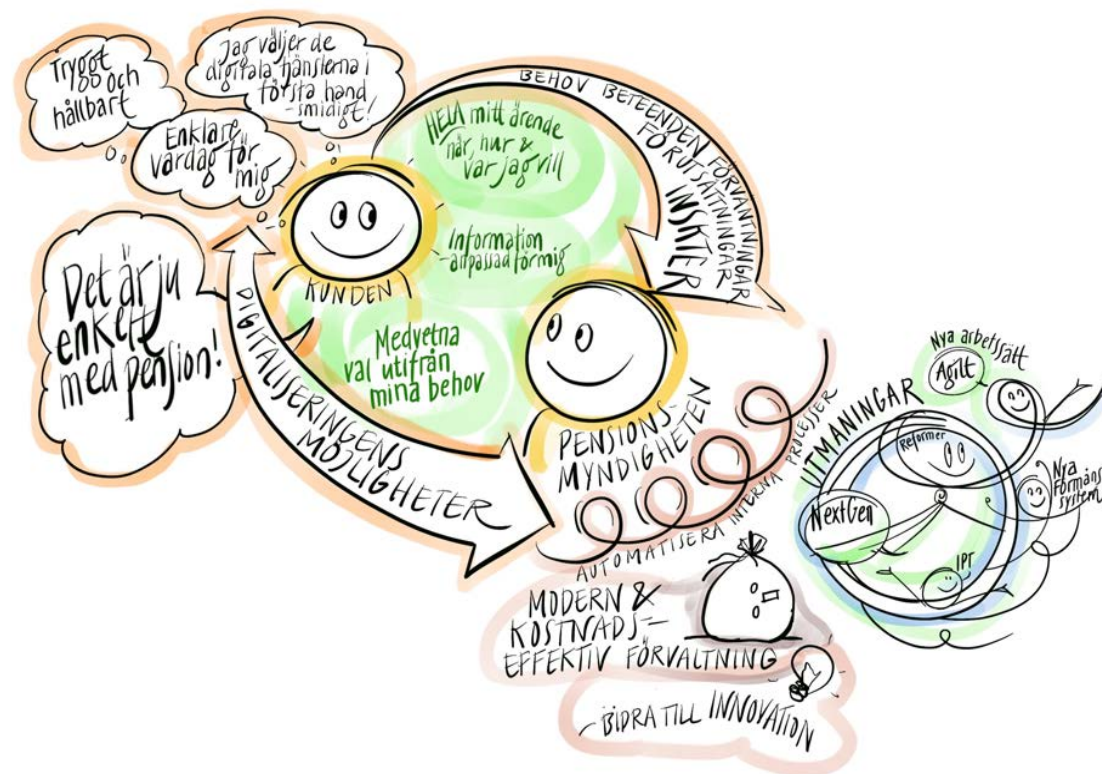 Tryggt
och
hållbart
Jag väljer de
digitala tjänsterna i
första hand
-smidigt!
Enklare
vardag för
mig
Det är ju
enkelt
med pension!
KUNDEN
HELA mitt ärende
når, hur &
var jag vill
Information
-anpassad för mig
Medvetna
val utifrån
mina behov
BEHOV BETEENDEN FÖRVÄNTNINGAR
FÖRUTSÄTTNINGAR
INSIKTER
DIGITALISERINGENS
MÖJLIGHETER
PENSIONS-
MYNDIGHETEN
AUTOMATISERA INTERNA PROCESSER
MODERN &
KOSTNADS-
EFFEKTIV FÖRVALTNING
-BIDRA TILL INNOVATION
UTMANINGAR
Nya arbetssätt
Agilt
Reformer
NextGen
Nya
Förmåns
system
IPT